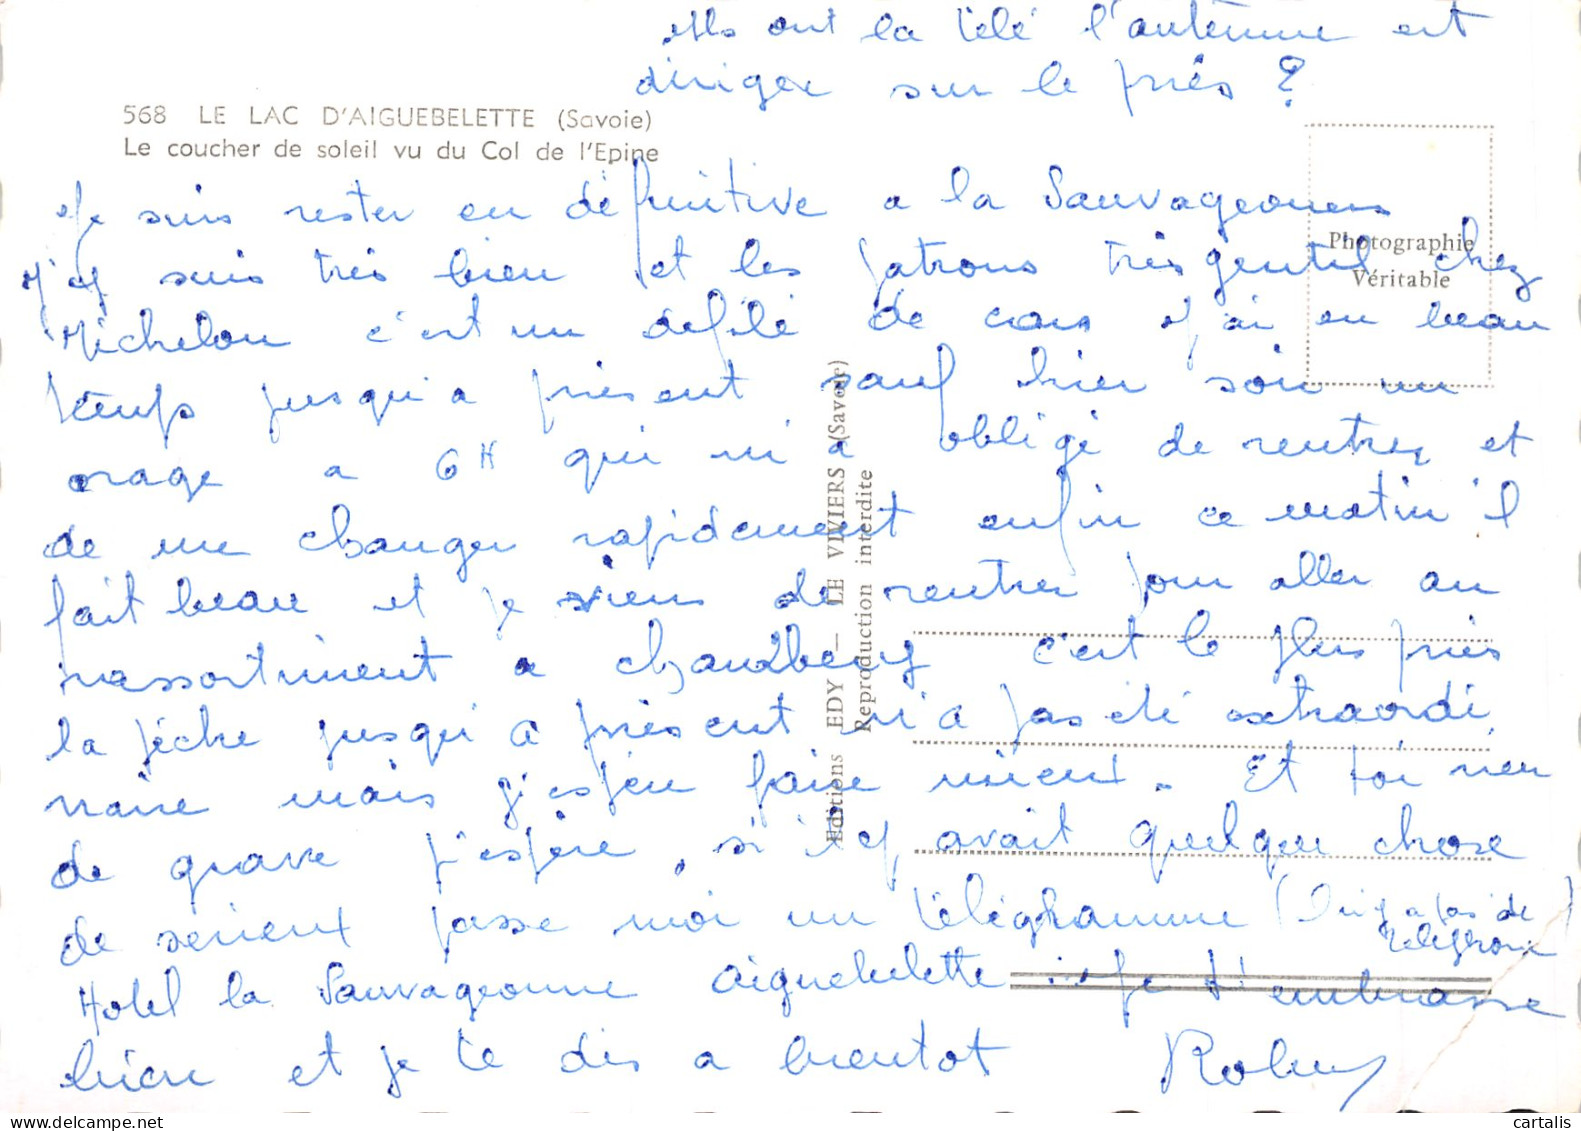 ils ont la télé l'antenne est
diriger sur le près ?
568 LE LAC D'AIGUEBELETTE (Savoie)
Le coucher de soleil vu du Col de l'Epine
Photographie
Véritable
Je suis rester en définitive a la Sauvageonne
j'y suis très bien et les patrons très gentil chez
Michelon c'est un défilé de cars j'ai eu beau
temps jusqu'a présent sauf hier soir un
orage a 6H qui m'a obligé de rentrer et
de me changer rapidement enfin ce matin il
fait beau et je viens de rentrer pour aller au
rassortiment a c'est le plus près
la pêche jusqu'a présent n'a pas été extraordi
naire mais j'espère faire mieux. Et toi rien
de grave j'espère, si il y avait quelque chose
de serieux passe moi un téléghramme (Il n'y a pas de
telephone)
Hotel la Sauvageonne Aiguebelette Je t'embrasse
bien et je te dis a bientot
Editions EDY — LE VIVIERS (Savoie)
Reproduction interdite
cartalis